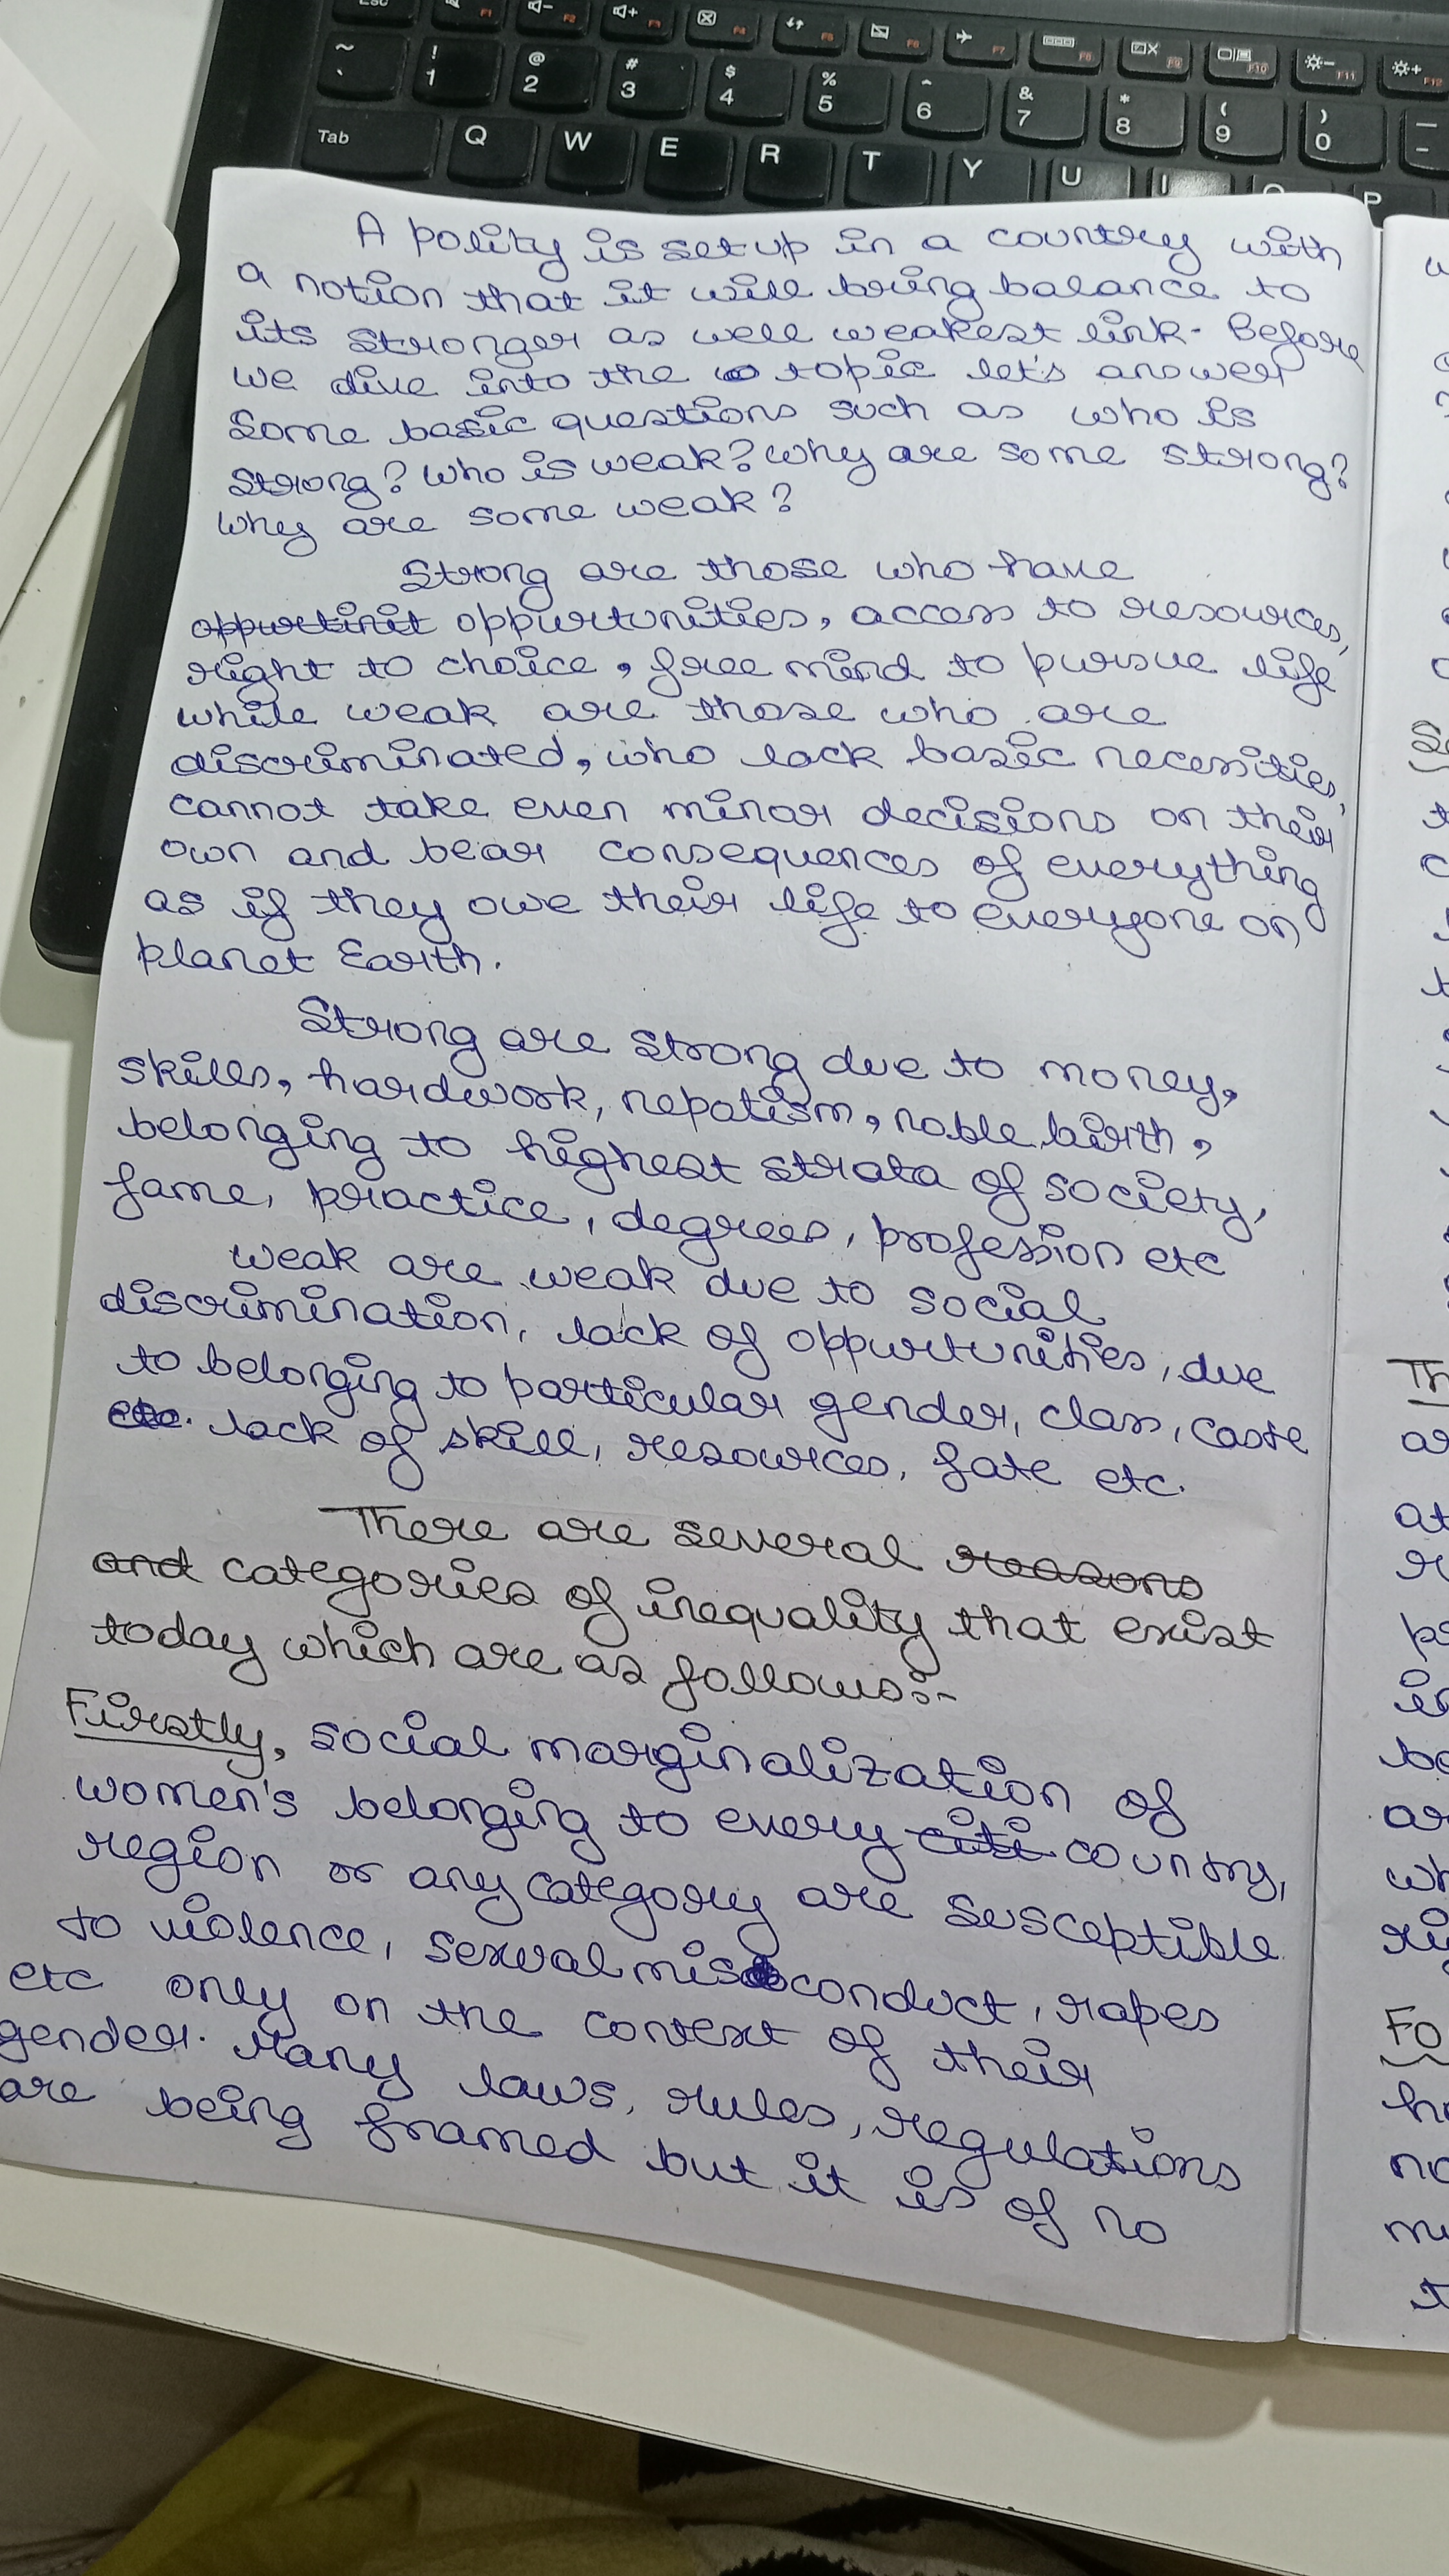 Esc F1 F2 F3 F4 F5 F6 F7 F8 F9 F10 F11 F12
~ ` ! 1 @ 2 # 3 $ 4 % 5 ^ 6 & 7 * 8 ( 9 ) 0 _ -
Tab Q W E R T Y U I O P
A polity is set up in a country with
a notion that it will bring balance to
its stronger as well weakest link. Before
we dive into the topic let's answer
some basic questions such as who is
strong? Who is weak? Why are some strong?
Why are some weak?
Strong are those who have
oppurtinit oppurtunities, access to resources,
right to choice, free mind to pursue life
while weak are those who are
discriminated, who lack basic necessities,
cannot take even minor decisions on their
own and bear consequences of everything
as if they owe their life to everyone on
planet Earth.
Strong are strong due to money,
skills, hardwork, nepotism, noble birth,
belonging to highest strata of society,
fame, practice, degrees, profession etc
weak are weak due to social
discrimination, lack of oppurtunities, due
to belonging to particular gender, class, caste
etc. lack of skill, resources, fate etc.
There are several reasons
and categories of inequality that exist
today which are as follows:-
Firstly, social marginalization of
women's belonging to every citi country,
region or any category are susceptible
to violence, sexual misconduct, rapes
etc only on the context of their
gender. Many laws, rules, regulations
are being framed but it is of no